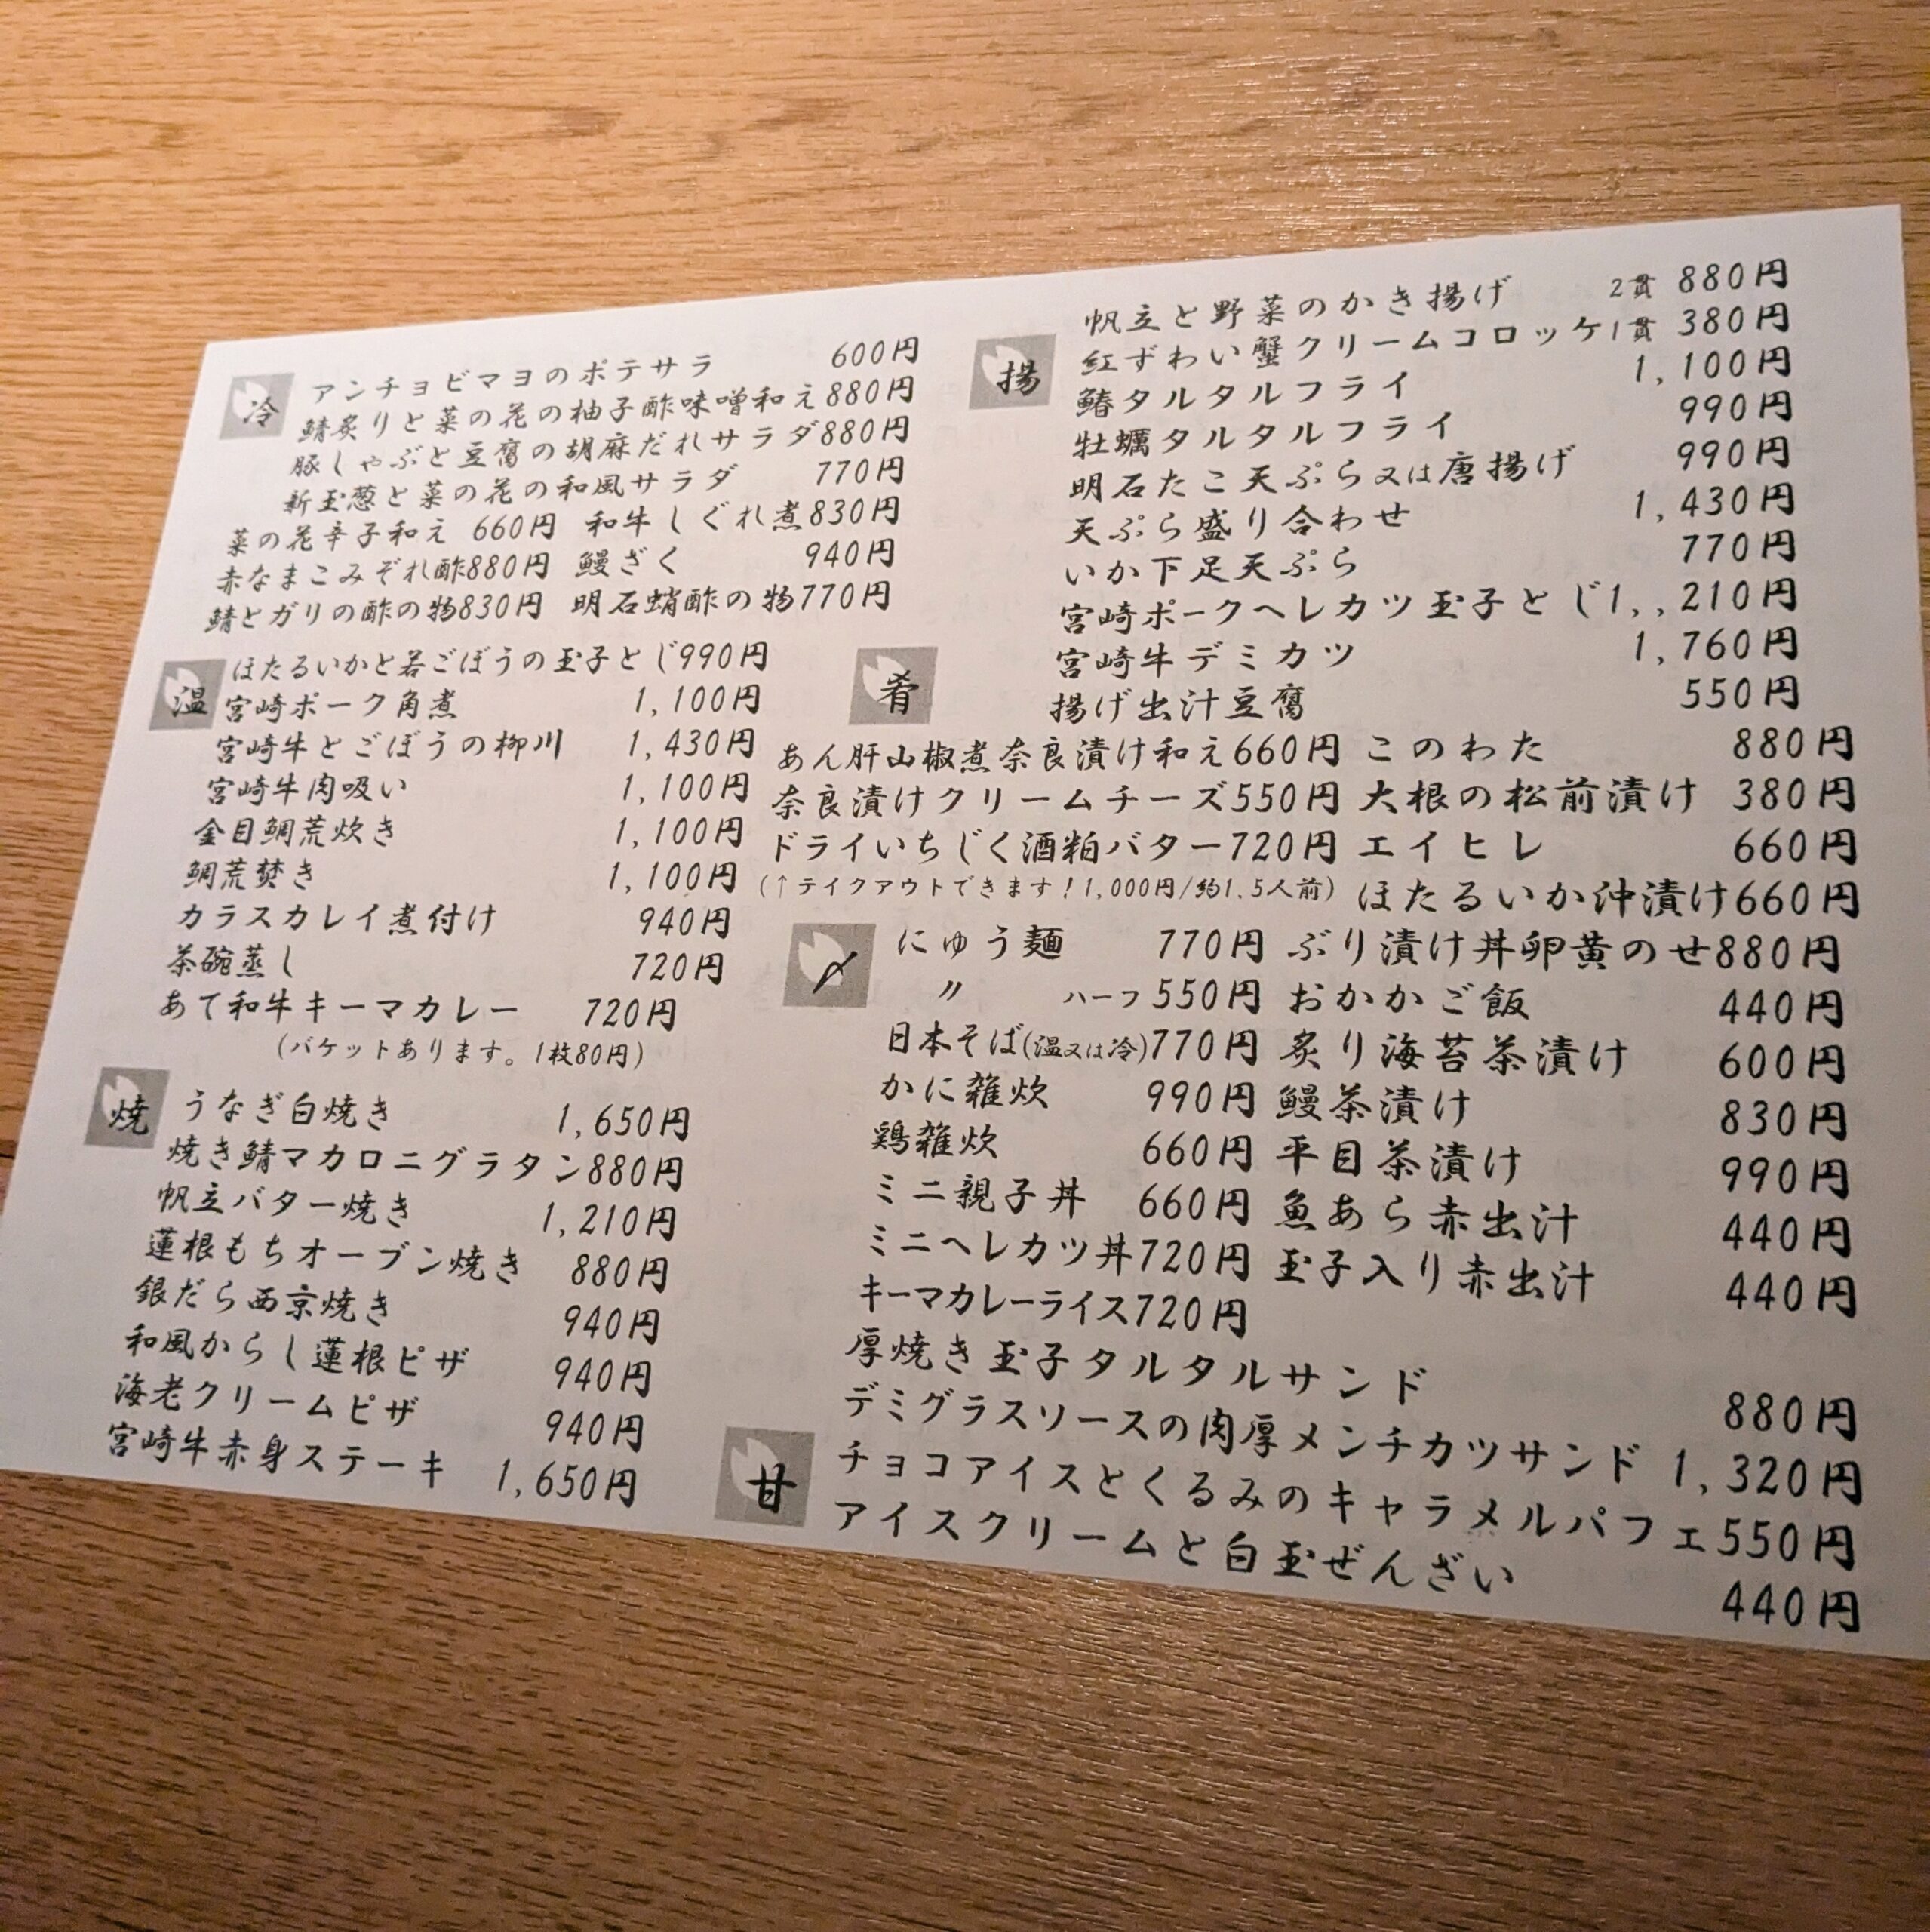 冷
アンチョビマヨのポテサラ 600円
鯖炙りと菜の花の柚子酢味噌和え880円
豚しゃぶと豆腐の胡麻だれサラダ880円
新玉葱と菜の花の和風サラダ 770円
菜の花辛子和え 660円 和牛しぐれ煮830円
赤なまこみぞれ酢880円 鰻ざく 940円
鯖とガリの酢の物830円 明石蛸酢の物770円
温
ほたるいかと若ごぼうの玉子とじ990円
宮崎ポーク角煮 1,100円
宮崎牛とごぼうの柳川 1,430円
宮崎牛肉吸い 1,100円
金目鯛荒炊き 1,100円
鯛荒焚き 1,100円
カラスカレイ煮付け 940円
茶碗蒸し 720円
あて和牛キーマカレー 720円
(バケットあります。1枚80円)
焼
うなぎ白焼き 1,650円
焼き鯖マカロニグラタン880円
帆立バター焼き 1,210円
蓮根もちオーブン焼き 880円
銀だら西京焼き 940円
和風からし蓮根ピザ 940円
海老クリームピザ 940円
宮崎牛赤身ステーキ 1,650円
揚
帆立と野菜のかき揚げ 2貫 880円
紅ずわい蟹クリームコロッケ1貫 380円
鰆タルタルフライ 1,100円
牡蠣タルタルフライ 990円
明石たこ天ぷら又は唐揚げ 990円
天ぷら盛り合わせ 1,430円
いか下足天ぷら 770円
宮崎ポークヘレカツ玉子とじ1,,210円
宮崎牛デミカツ 1,760円
揚げ出汁豆腐 550円
肴
あん肝山椒煮奈良漬け和え660円 このわた 880円
奈良漬けクリームチーズ550円 大根の松前漬け 380円
ドライいちじく酒粕バター720円 エイヒレ 660円
(↑テイクアウトできます!1,000円/約1.5人前) ほたるいか沖漬け660円
〆
にゅう麺 770円 ぶり漬け丼卵黄のせ880円
〃 ハーフ550円 おかかご飯 440円
日本そば(温又は冷)770円 炙り海苔茶漬け 600円
かに雑炊 990円 鰻茶漬け 830円
鶏雑炊 660円 平目茶漬け 990円
ミニ親子丼 660円 魚あら赤出汁 440円
ミニヘレカツ丼720円 玉子入り赤出汁 440円
キーマカレーライス720円
厚焼き玉子タルタルサンド 880円
デミグラスソースの肉厚メンチカツサンド 1,320円
甘
チョコアイスとくるみのキャラメルパフェ550円
アイスクリームと白玉ぜんざい 440円